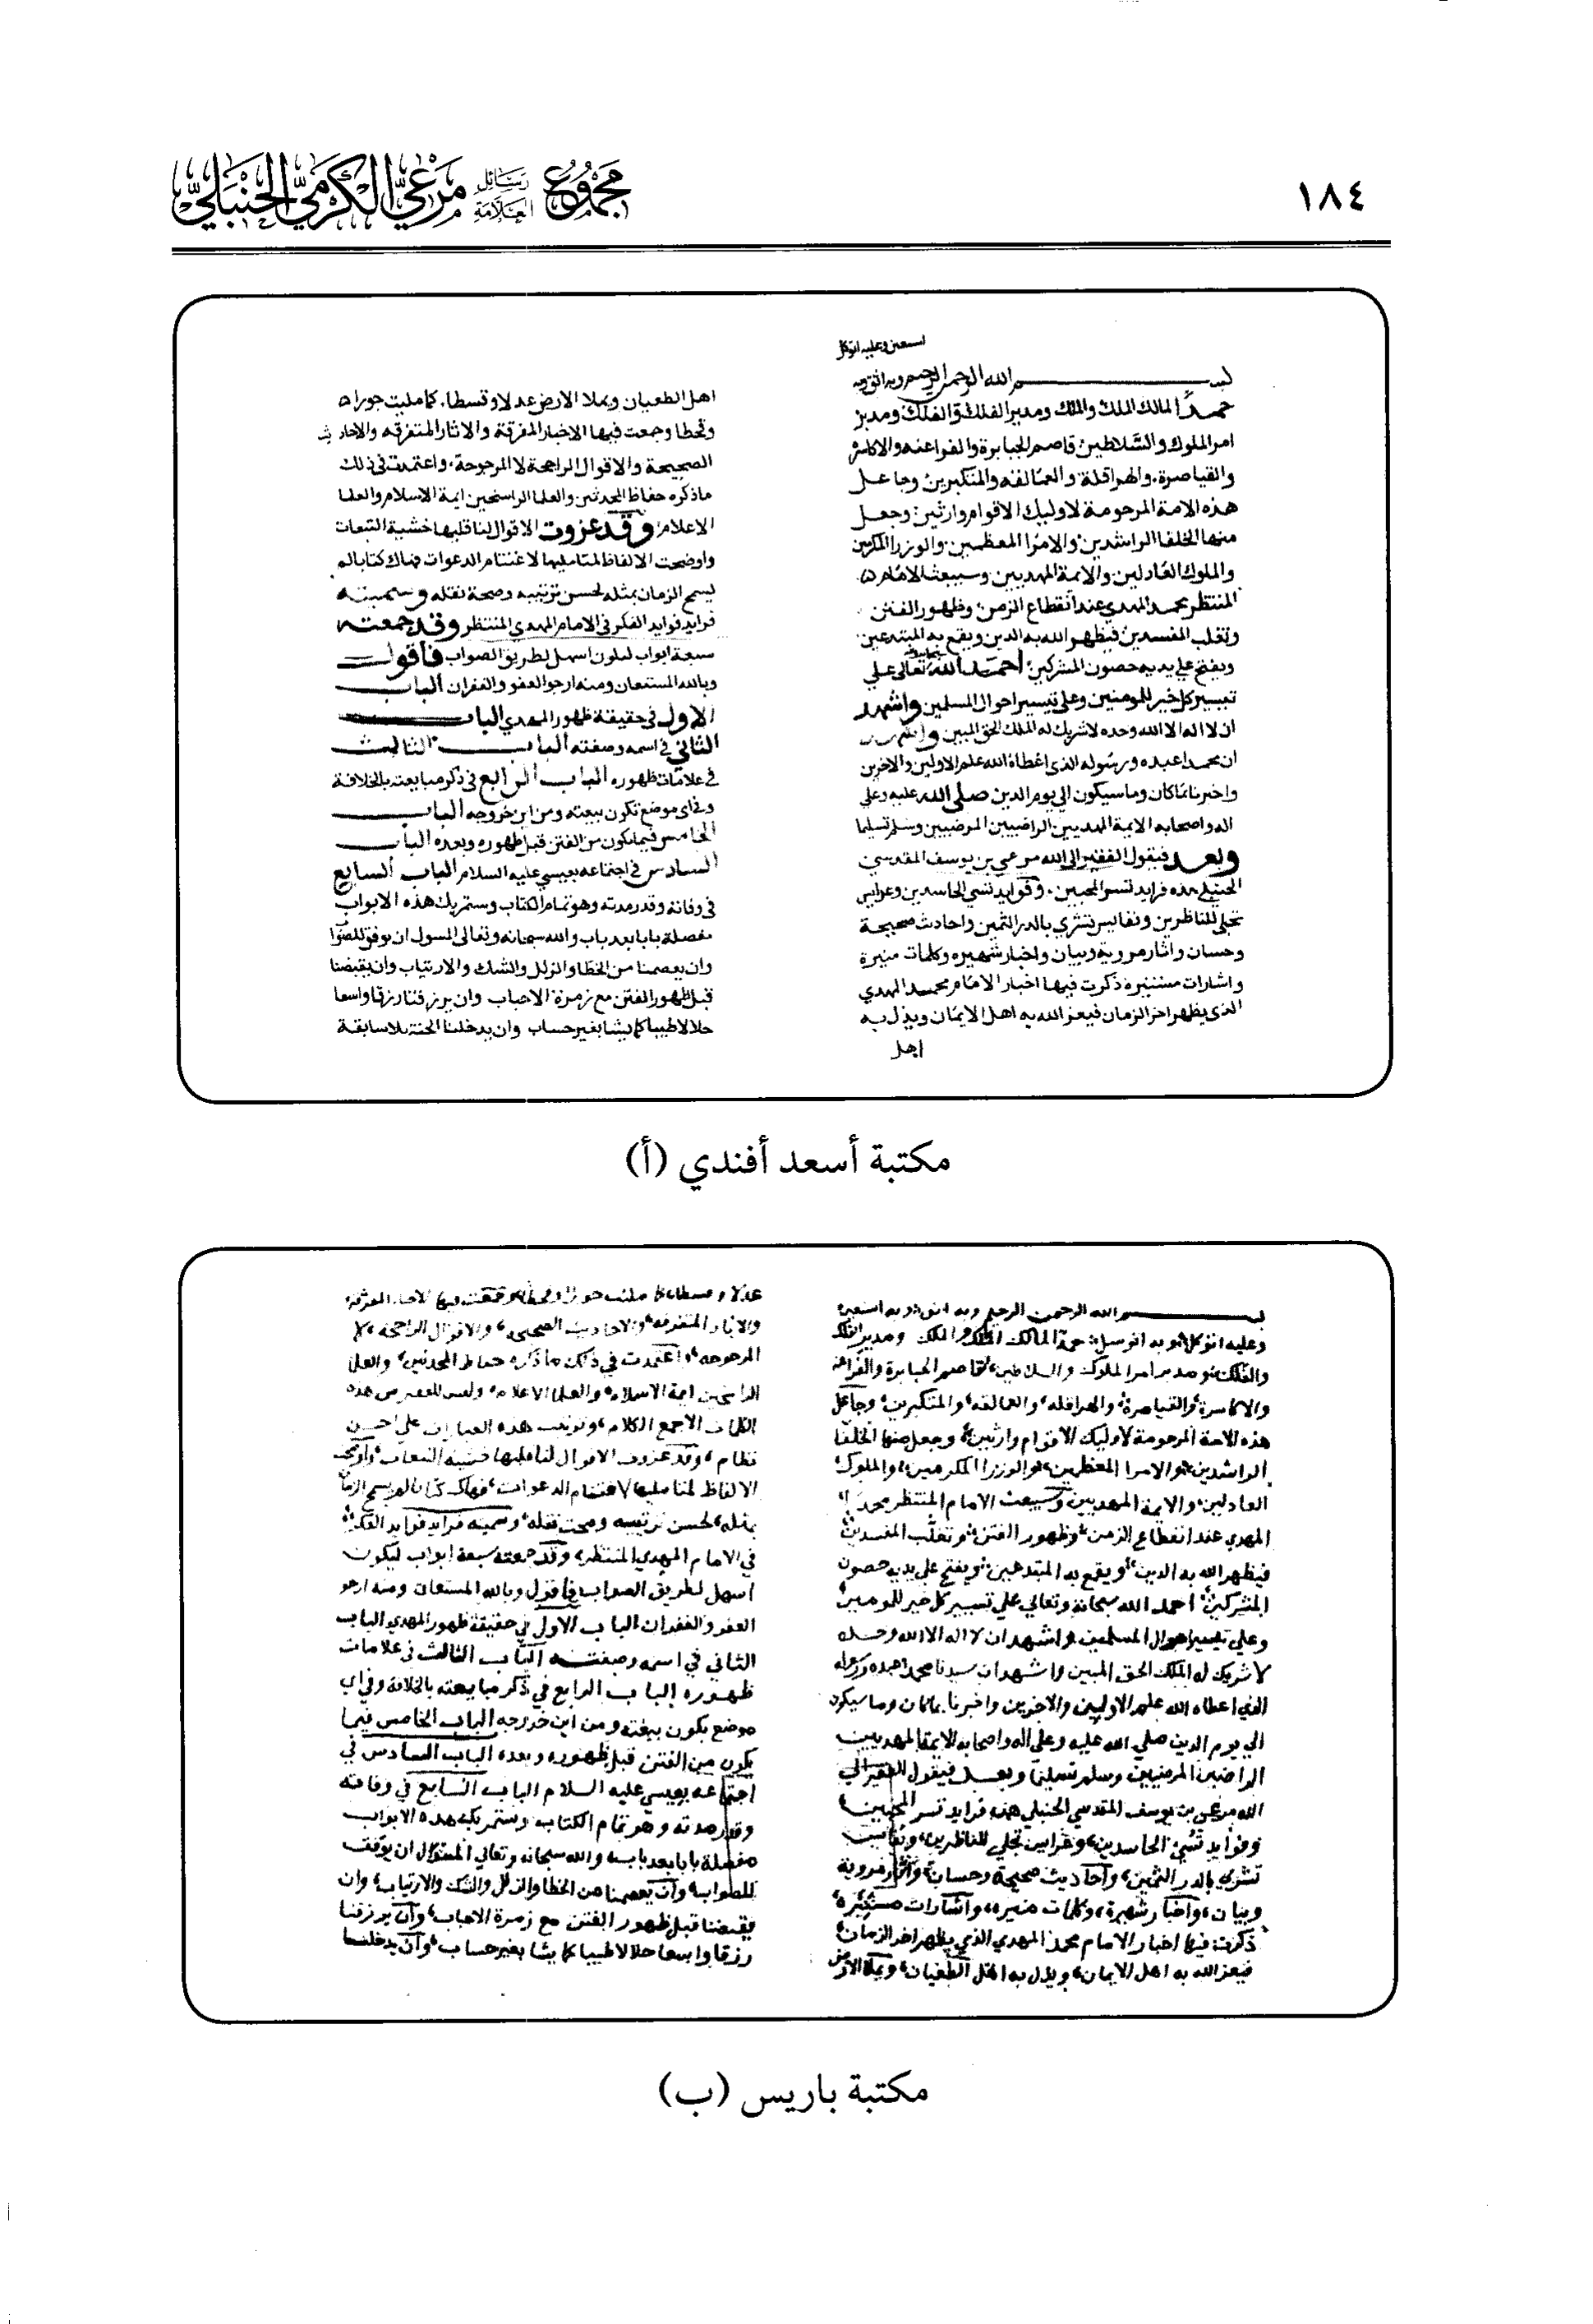 ١٨٤
مجموع رسائل العلامة مرعي الكرمي الحنبلي
استعين وعليه اتوكل
بسم الله الرحمن الرحيم وبه اثق وبه
حمدًا لمالك الملك والملك ومدير الفلك والفلك ومدبر
امر الملوك والسلاطين قاصم الجبابرة والفراعنه والاكاسرة
والقياصرة والهراقلة والعمالقه والمتكبرين وجاعل
هذه الامة المرحومة لاوليك الاقوام وارثين وجعل
منها الخلفا الراشدين والامرا المعظمين والوزرا المكرمين
والملوك العادلين والايمة المهديين وسيبعث الامام
المنتظر محمد المهدي عند انقطاع الزمن وظهور الفتن
وتغلب المفسدين فيظهر الله به الدين ويقمع به المبتدعين
ويفتح علي يديه حصون المشركين احمد الله تعالى علي
تيسير كل خير للمومنين وعلي تيسير احوال المسلمين واشهد
ان لا اله الا الله وحده لا شريك له الملك الحق المبين
ان محمدا عبده ورسوله الذي اعطاه الله علم الاولين والاخرين
واخبرنا بما كان وما سيكون الي يوم الدين صلى الله عليه وعلي
اله واصحابه الايمة المهديين الراضيين المرضيين وسلم تسليما
وبعد فيقول الفقير الى الله مرعي بن يوسف المقدسي
الحنبلي هذه فرايد تسر المحبين وفوايد تسي الحاسدين وعرايس
تجلي للناظرين ونفايس تشري بالدر الثمين واحاديث صحيحة
وحسان واثار مروية وبيان واخبار شهيره وكلمات منيرة
واشارات مستنيره ذكرت فيها اخبار الامام محمد المهدي
الذي يظهر اخر الزمان فيعز الله به اهل الايمان ويذل به
اهل
اهل الطغيان ويملا الارض عدلا وقسطا كما مليت جورا
وقحطا وجمعت فيها الاخبار المفرقة والاثار المتفرقه والاحاديث
الصحيحة والاقوال الراجحة لا المرجوحة واعتمدت في ذلك
ما ذكره حفاظ المحدثين والعلما الراسخين ايمة الاسلام والعلما
الاعلام وقد عزوت الاقوال لناقليها خشية التبعات
واوضحت الالفاظ لمتامليها لاغتنام الدعوات فهاك كتابا لم
يسمح الزمان بمثله لحسن ترتيبه وصحة نقله وسميته
فرايد فوايد الفكر في الامام المهدي المنتظر وقد جمعته
سبعة ابواب ليكون اسهل لطريق الصواب فاقول
وبالله المستعان ومنه ارجو العفو والغفران الباب
الاول في حقيقة ظهور المهدي الباب
الثاني في اسمه وصفته الباب الثالث
في علامات ظهوره الباب الرابع في ذكر مبايعته بالخلافة
وفي اي موضع تكون بيعته ومن اين خروجه الباب
الخامس فيما يكون من الفتن قبل ظهوره وبعده الباب
السادس في اجتماعه بعيسي عليه السلام الباب السابع
في وفاته وقدر مدته وهو تمام الكتاب وستمر بك هذه الابواب
مفصلة بابا بعد باب والله سبحانه وتعالى المسول ان يوفق للصواب
وان يعصمنا من الخطا والزلل والشك والارتياب وان يقبضنا
قبل ظهور الفتن مع زمرة الاحباب وان يرزقنا رزقا واسعا
حلالا طيبا كما يشا بغير حساب وان يدخلنا الجنة بلا سابقة
مكتبة أسعد أفندي (أ)
بسم الله الرحمن الرحيم وبه اثق وبه استعين
وعليه اتوكل وبه اتوسل حمدًا لمالك الملك والملك ومدير الفلك
والفلك ومدبر امر الملوك والسلاطين قاصم الجبابرة والفراعنة
والاكاسرة والقياصرة والهراقله والعمالقه والمتكبرين وجاعل
هذه الامة المرحومة لاوليك الاقوام وارثين وجعل منها الخلفا
الراشدين والامرا المعظمين والوزرا المكرمين والملوك
العادلين والايمة المهديين وسيبعث الامام المنتظر محمد
المهدي عند انقطاع الزمن وظهور الفتن وتغلب المفسدين
فيظهر الله به الدين ويقمع به المبتدعين ويفتح على يديه حصون
المشركين احمد الله سبحانه وتعالي علي تيسير كل خير للمومنين
وعلي تيسير احوال المسلمين واشهد ان لا اله الا الله وحده
لا شريك له الملك الحق المبين واشهد ان سيدنا محمدا عبده ورسوله
الذي اعطاه الله علم الاولين والاخرين واخبرنا بما كان وما سيكون
الي يوم الدين صلي الله عليه وعلى اله واصحابه الايمة المهديين
الراضين المرضيين وسلم تسليما وبعد فيقول الفقير الي
الله مرعي بن يوسف المقدسي الحنبلي هذه فرايد تسر المحبين
وفوايد تسي الحاسدين وعرايس تجلي للناظرين ونفايس
تشري بالدر الثمين واحاديث صحيحة وحسان واثار مروية
وبيان واخبار شهيرة وكلمات منيره واشارات مستنيره
ذكرت فيها اخبار الامام محمد المهدي الذي يظهر اخر الزمان
فيعز الله به اهل الايمان ويذل به اهل الطغيان ويملا الارض
عدلا وقسطا كما مليت جورا وقحطا وجمعت فيها الاخبار المفرقة
والاثار المتفرقه والاحاديث الصحيحه والاقوال الراجحة لا
المرجوحه واعتمدت في ذلك ما ذكره حفاظ المحدثين والعلما
الراسخين ايمة الاسلام والعلما الاعلام وليس للفقير من هذه
الكلمات الا جمع الكلام وترتيب هذه العبارات علي احسن
نظام وقد عزوت الاقوال لناقليها خشية التبعات واوضحت
الالفاظ لمتامليها لاغتنام الدعوات فهاك كتابا لم يسمح الزمان
بمثله لحسن ترتيبه وصحت نقله وسميته فرايد فوايد الفكر
في الامام المهدي المنتظر وقد جمعته سبعة ابواب ليكون
اسهل لطريق الصواب فاقول وبالله المستعان ومنه ارجو
العفو والغفران الباب الاول في حقيقة ظهور المهدي الباب
الثاني في اسمه وصفته الباب الثالث في علامات
ظهوره الباب الرابع في ذكر مبايعته بالخلافة وفي اي
موضع يكون بيعته ومن اين خروجه الباب الخامس فيما
يكون من الفتن قبل ظهوره وبعده الباب السادس في
اجتماعه بعيسي عليه السلام الباب السابع في وفاته
وقدر مدته وهو تمام الكتاب وستمر بك هذه الابواب
مفصلة بابا بعد باب والله سبحانه وتعالي المسؤل ان يوفق
للصواب وان يعصمنا من الخطا والزلل والشك والارتياب وان
يقبضنا قبل ظهور الفتن مع زمرة الاحباب وان يرزقنا
رزقا واسعا حلالا طيبا كما يشا بغير حساب وان يدخلنا
مكتبة باريس (ب)